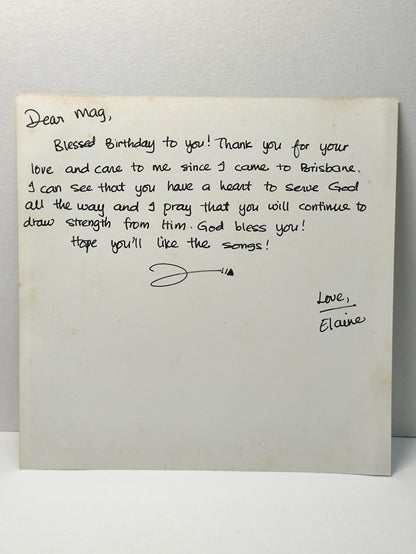 Dear Mag,
Blessed Birthday to you! Thank you for your
love and care to me since I came to Brisbane.
I can see that you have a heart to serve God
all the way and I pray that you will continue to
draw strength from Him. God bless you!
Hope you'll like the songs!
Love,
Elaine